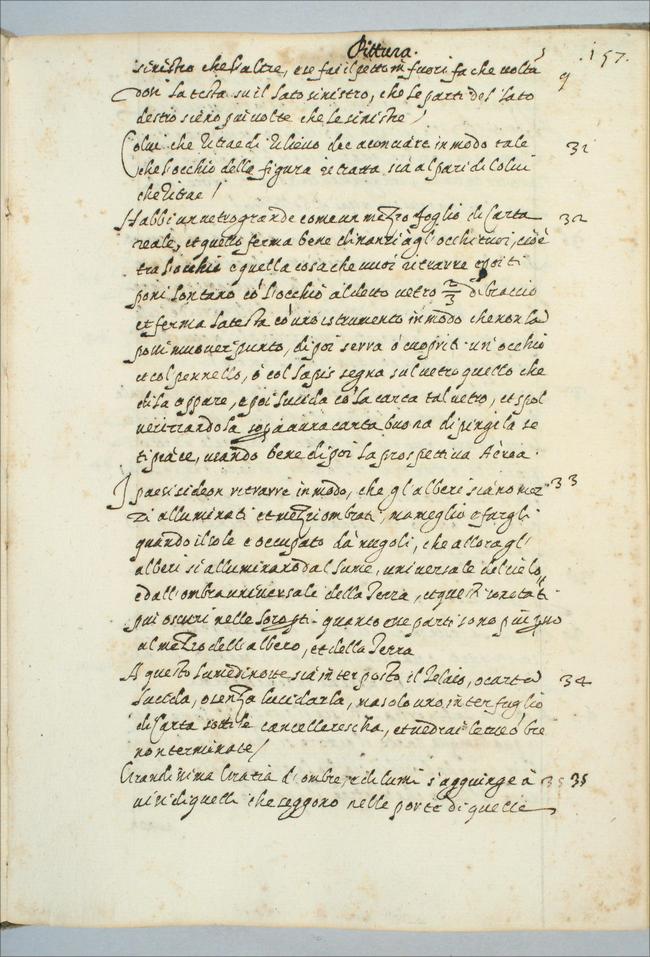 Pittura.
.157.
9
sinistro che l'altre, e se fai il petto in fuori fa che voltã
doti la testa su il lato sinistro, che le parti del lato
destro sieno piu alte che le sinistre /
Colui che ritrae di rilievo dee aconciare in modo tale 31
che l'occhio della figura ritratta sia al pari di colui
che ritrae /
Habbi un vetro grande come un mezzo foglio di Carta 32
reale, et questo ferma bene dinanzi à gl'occhi tuoi, cioè
tra l'occhio e quella cosa che vuoi ritrarre e poi ti
poni lontano cõ l'occhio al detto vetro 2/3 di braccio
et ferma la testa cõ uno istrumento in modo che non la
possi muover punto, dipoi serra ò cuopriti un'occhio
et col pennello, ò col lapis segna sul vetro quello che
di la appare, e poi lucida cõ la carta tal vetro, et spol
verizzandola sopa una carta buona dipingila se
ti piace, usando bene dipoi la prospettiva Aerea.
I paesi si deon ritrarre in modo, che gl'alberi siano mez 33
zi alluminati et mezzi ombrati, ma meglio è fargli
quando il sole è occupato da nugoli, che allora gl'
alberi si alluminano dal lume, universale del cielo,
e dall'ombra universale della Terra, et questi son tãti
piu oscuri nelle lor parti quanto esse parti sono piu
al mezzo dell'albero, et della Terra
A questo lume di notte sia interposto il telaio, o carta 34
lucida, o senza lucidarla, ma solo uno interfoglio
di Carta sottile cancellerescha, et vedrai le tue õbre
non terminate /
Grandissima Gratia d'ombre, e di lumi s'aggiunge à 35 35
visi di quelli che seggono nelle porte di quelle